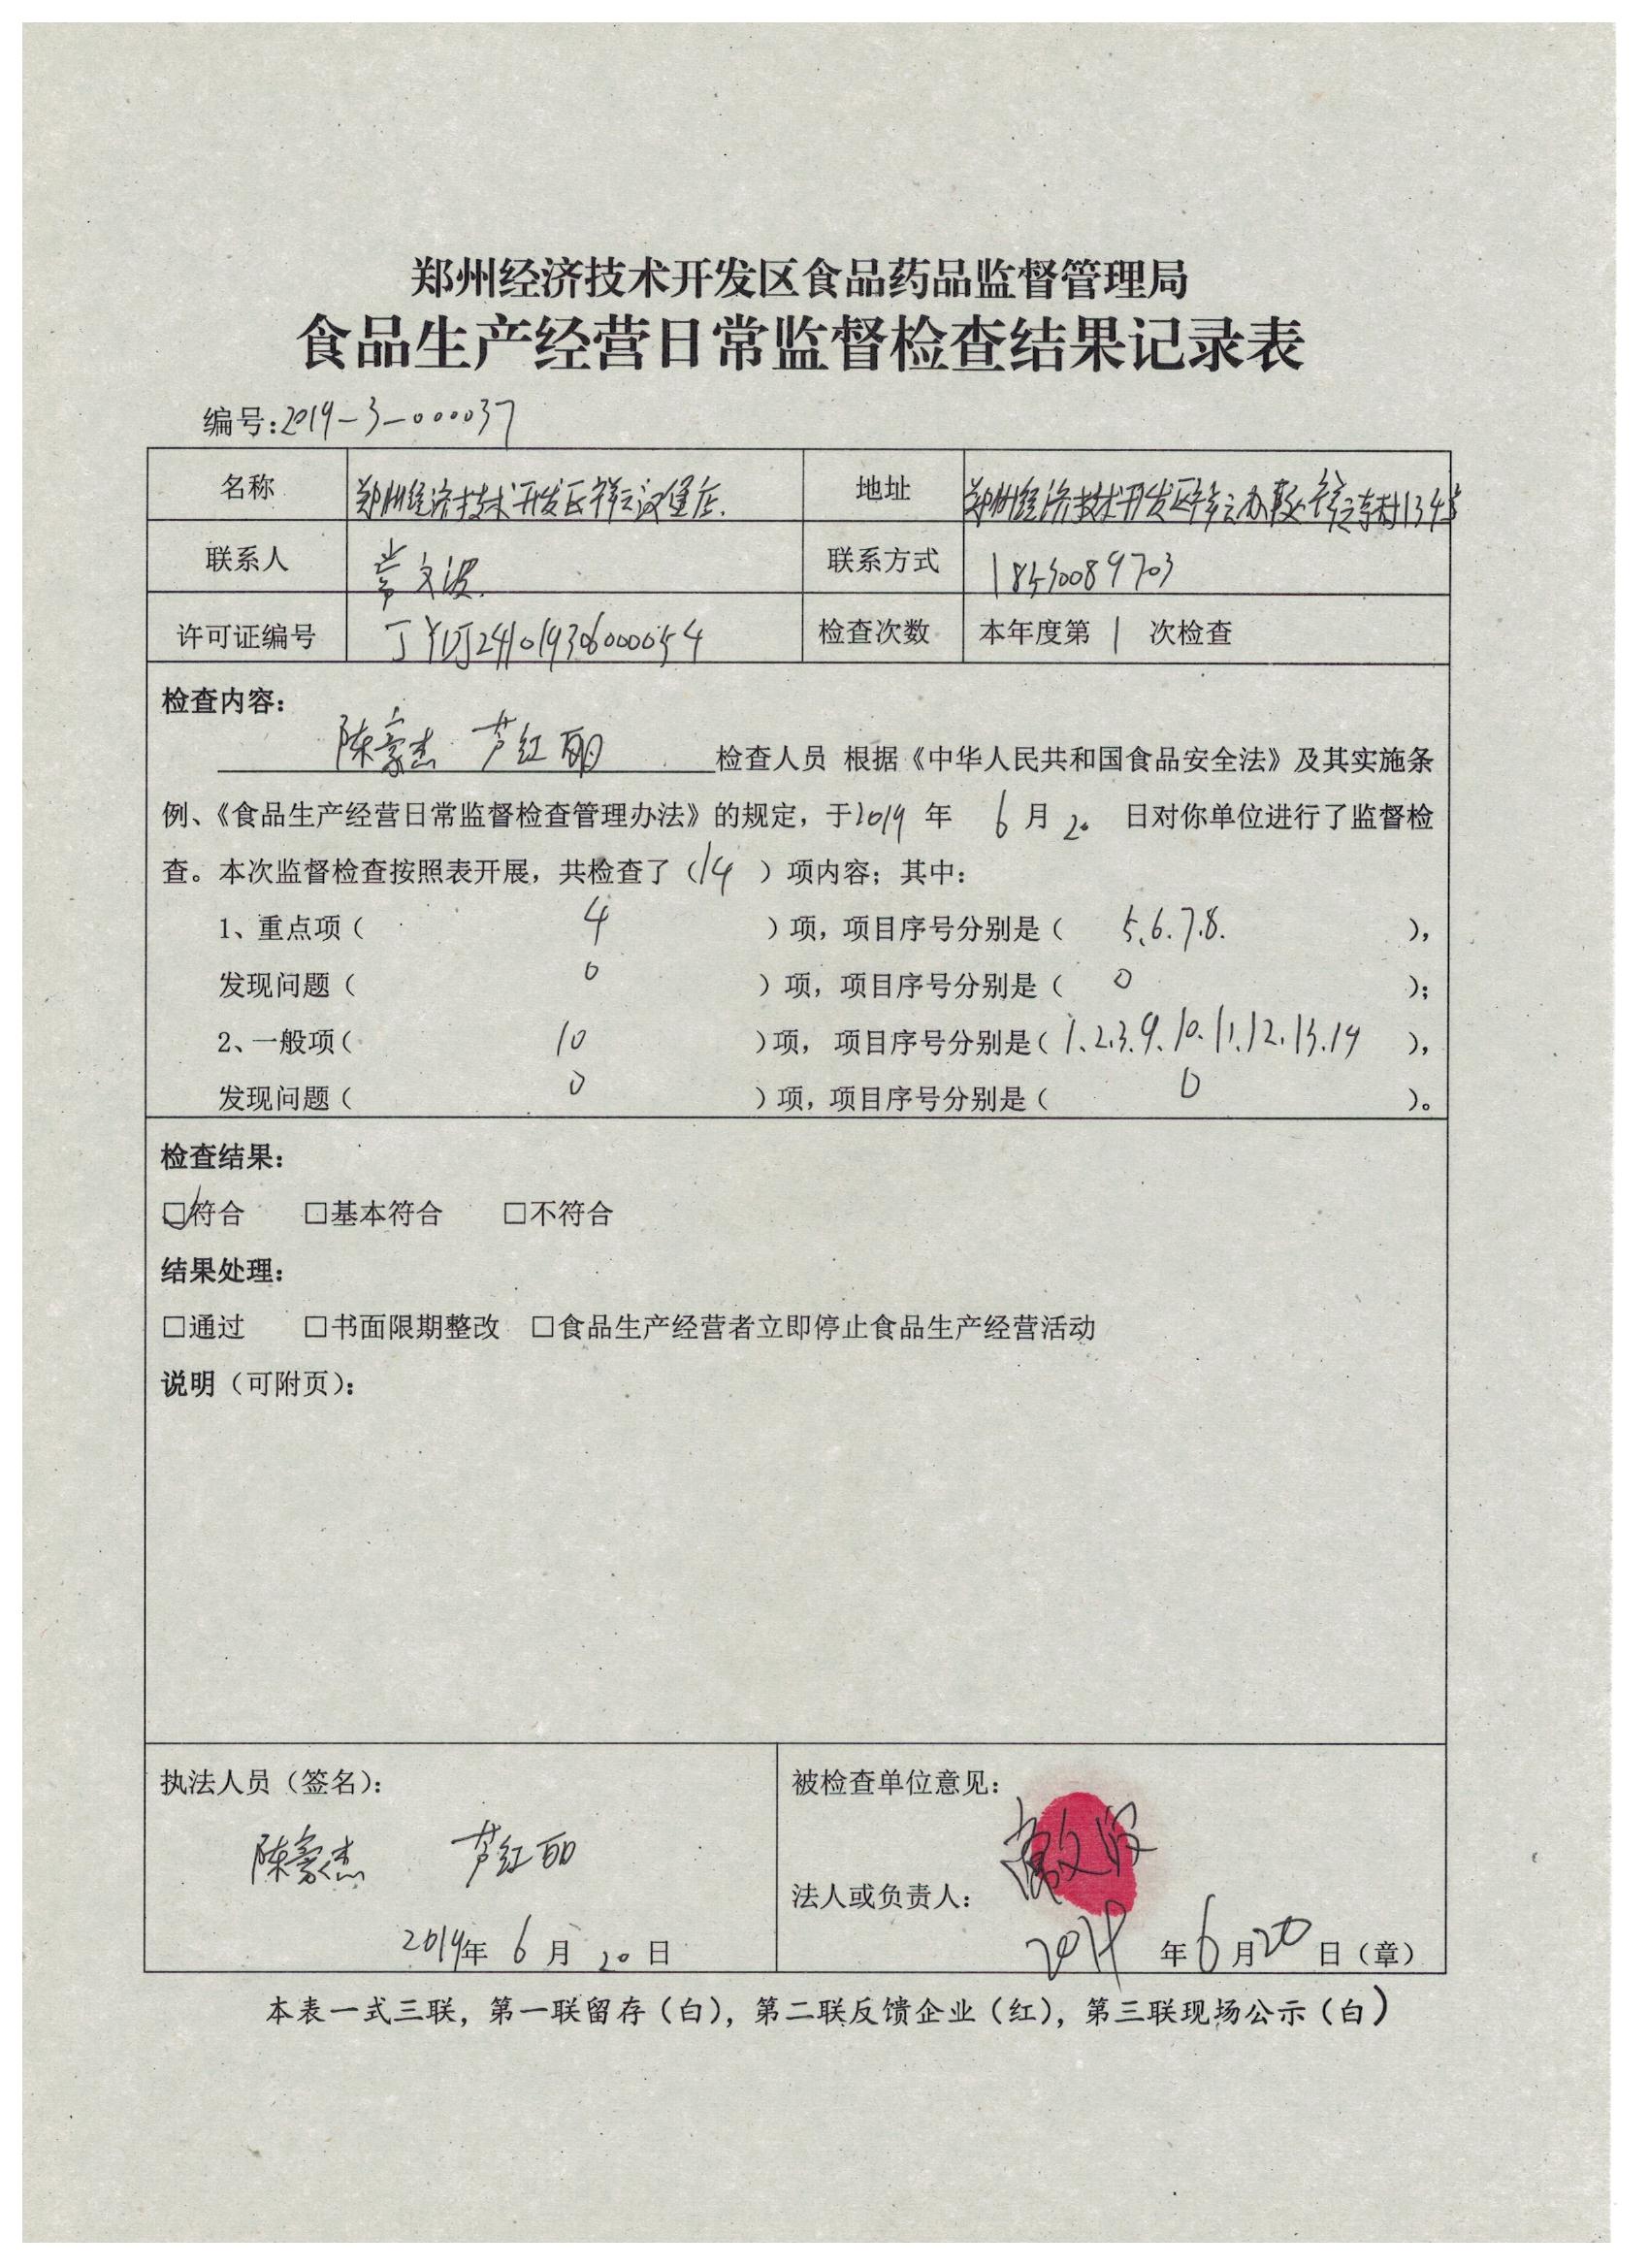 郑州经济技术开发区食品药品监督管理局
食品生产经营日常监督检查结果记录表
编号:2019-3-000037
名称 郑州经济技术开发区祥云汉堡店. 地址 郑州经济技术开发区祥云办事处祥云东村134号
联系人 常文波. 联系方式
许可证编号 JYDJ24101930600054 检查次数 本年度第 1 次检查
检查内容：
陈豪杰 芦红丽 检查人员 根据《中华人民共和国食品安全法》及其实施条
例、《食品生产经营日常监督检查管理办法》的规定，于2019 年 6 月 20 日对你单位进行了监督检
查。本次监督检查按照表开展，共检查了（14 ）项内容；其中：
1、重点项（ 4 ）项，项目序号分别是（ 5、6、7、8. ），
发现问题（ 0 ）项，项目序号分别是（ 0 ）；
2、一般项（ 10 ）项， 项目序号分别是（ 1、2、3、9、10、11、12、13、14 ），
发现问题（ 0 ）项，项目序号分别是（ 0 ）。
检查结果：
☑符合 □基本符合 □不符合
结果处理：
□通过 □书面限期整改 □食品生产经营者立即停止食品生产经营活动
说明（可附页）：
执法人员（签名）： 被检查单位意见：
陈豪杰 芦红丽 常文波
法人或负责人：
2019年 6 月 20 日 年6月20日（章）
本表一式三联，第一联留存（白），第二联反馈企业（红），第三联现场公示（白）